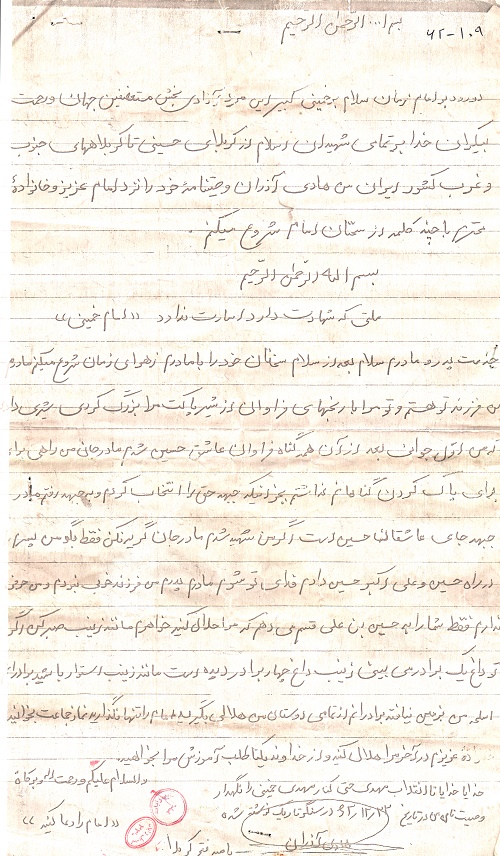 بسم ا... الرّحمٰن الرّحیم
۶۲-۱۰۹
درود بر امام زمان سلام بر خمینی کبیر این مرد آزادی بخش مستضعفین جهان و رحمت
بیکران خدا بر تمامی شهیدان اسلام از کربلای حسینی تا کربلاههای جنوب
و غرب کشور ایران من هادی آذران وصیتنامهٔ خود را نزد امام عزیز و خانوادهٔ
محترم با چند کلمه از سخنان امام شروع میکنم.
بسم الله الرّحمٰن الرّحیم
ملتی که شهادت دارد اسارت ندارد «امام خمینی»
خدمت پدر و مادرم سلام بعد از سلام سخنان خود را با مادرم زهرای زمان شروع میکنم مادرم
من فرزند تو هستم و تو مرا با رنجهای فراوان از شیر پاکت مرا بزرگ کردی
من اول جوانی بعد از آن همه گناه فراوان عاشق حسین شدم مادر جانی من راهی برای
برای پاک کردن گناهانم نداشتم بجز اینکه جبهه حق را انتخاب کردم و به جبهه رفتم مادر
جبهه جای عاشقان حسین است اگر من شهید شدم مادر جان گریه نکن فقط بگو من پسرم
در راه حسین و علی اکبر حسین دادم فدای تو شوم مادرم پدرم من فرزند خوب نبودم و من حرفی
ندارم فقط شما را به حسین بن علی قسم می دهم که مرا حلال کنید خواهرم مانند زینب صبر کن اگر
تو داغ یک برادر می بینی زینب داغ چهار برادر دیده است مانند زینب استوار باشید برادران
اسلحه من بزمین نیافتد برادرانم از تمامی دوستان من حلالی بگیرید امام را تنها نگذارید نماز جماعت بخوانید
عزیزم در آخر مرا حلال کنید و از خداوند یکتا طلب آمرزش مرا بخواهید
والسلام علیکم و رحمت الله و برکاة
خدایا خدایا تا انقلاب مهدی حتی کنار مهدی خمینی را نگهدار
وصیت نامه در تاریخ نوشته شده
«امام را دعا کنید»
هادی آذران